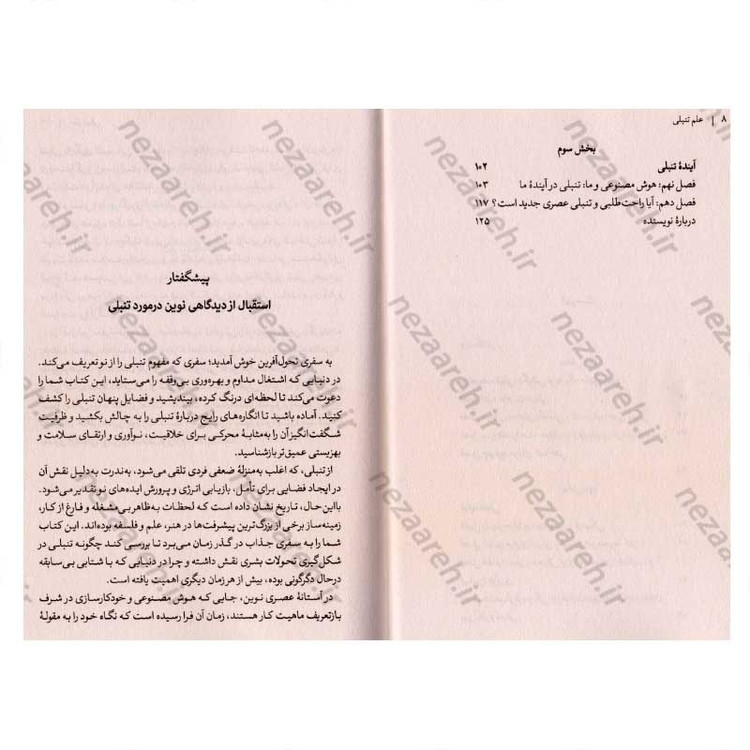 ۸ | علم تنبلی
بخش سوم
آیندهٔ تنبلی ۱۰۲
فصل نهم: هوش مصنوعی و ما: تنبلی در آیندهٔ ما ۱۰۳
فصل دهم: آیا راحت‌طلبی و تنبلی عصری جدید است؟ ۱۱۷
دربارهٔ نویسنده ۱۲۵
پیشگفتار
استقبال از دیدگاهی نوین درمورد تنبلی
به سفری تحول‌آفرین خوش آمدید؛ سفری که مفهوم تنبلی را از نو تعریف می‌کند.
در دنیایی که اشتغال مداوم و بهره‌وری بی‌وقفه را می‌ستاید، این کتاب شما را
دعوت می‌کند تا لحظه‌ای درنگ کرده، بیندیشید و فضایل پنهان تنبلی را کشف
کنید. آماده باشید تا انگاره‌های رایج دربارهٔ تنبلی را به چالش بکشید و ظرفیت
شگفت‌انگیز آن را به‌مثابهٔ محرکی برای خلاقیت، نوآوری و ارتقای سلامت و
بهزیستی عمیق‌تر بازشناسید.
از تنبلی، که اغلب به‌منزلهٔ ضعفی فردی تلقی می‌شود، به‌ندرت به‌دلیل نقش آن
در ایجاد فضایی برای تأمل، بازیابی انرژی و پرورش ایده‌های نو تقدیر می‌شود.
بااین‌حال، تاریخ نشان داده است که لحظات به‌ظاهر بی‌مشغله و فارغ از کار،
زمینه‌ساز برخی از بزرگ‌ترین پیشرفت‌ها در هنر، علم و فلسفه بوده‌اند. این کتاب
شما را به سفری جذاب در گذر زمان می‌برد تا بررسی کند چگونه تنبلی در
شکل‌گیری تحولات بشری نقش داشته و چرا در دنیایی که با شتابی بی‌سابقه
درحال دگرگونی بوده، بیش از هر زمان دیگری اهمیت یافته است.
در آستانهٔ عصری نوین، جایی که هوش مصنوعی و خودکارسازی در شرف
بازتعریف ماهیت کار هستند، زمان آن فرا رسیده است که نگاه خود را به مقولهٔ
nezaareh.ir
nezaareh.ir
nezaareh.ir
nezaareh.ir
nezaareh.ir
nezaareh.ir
nezaareh.ir
nezaareh.ir
nezaareh.ir